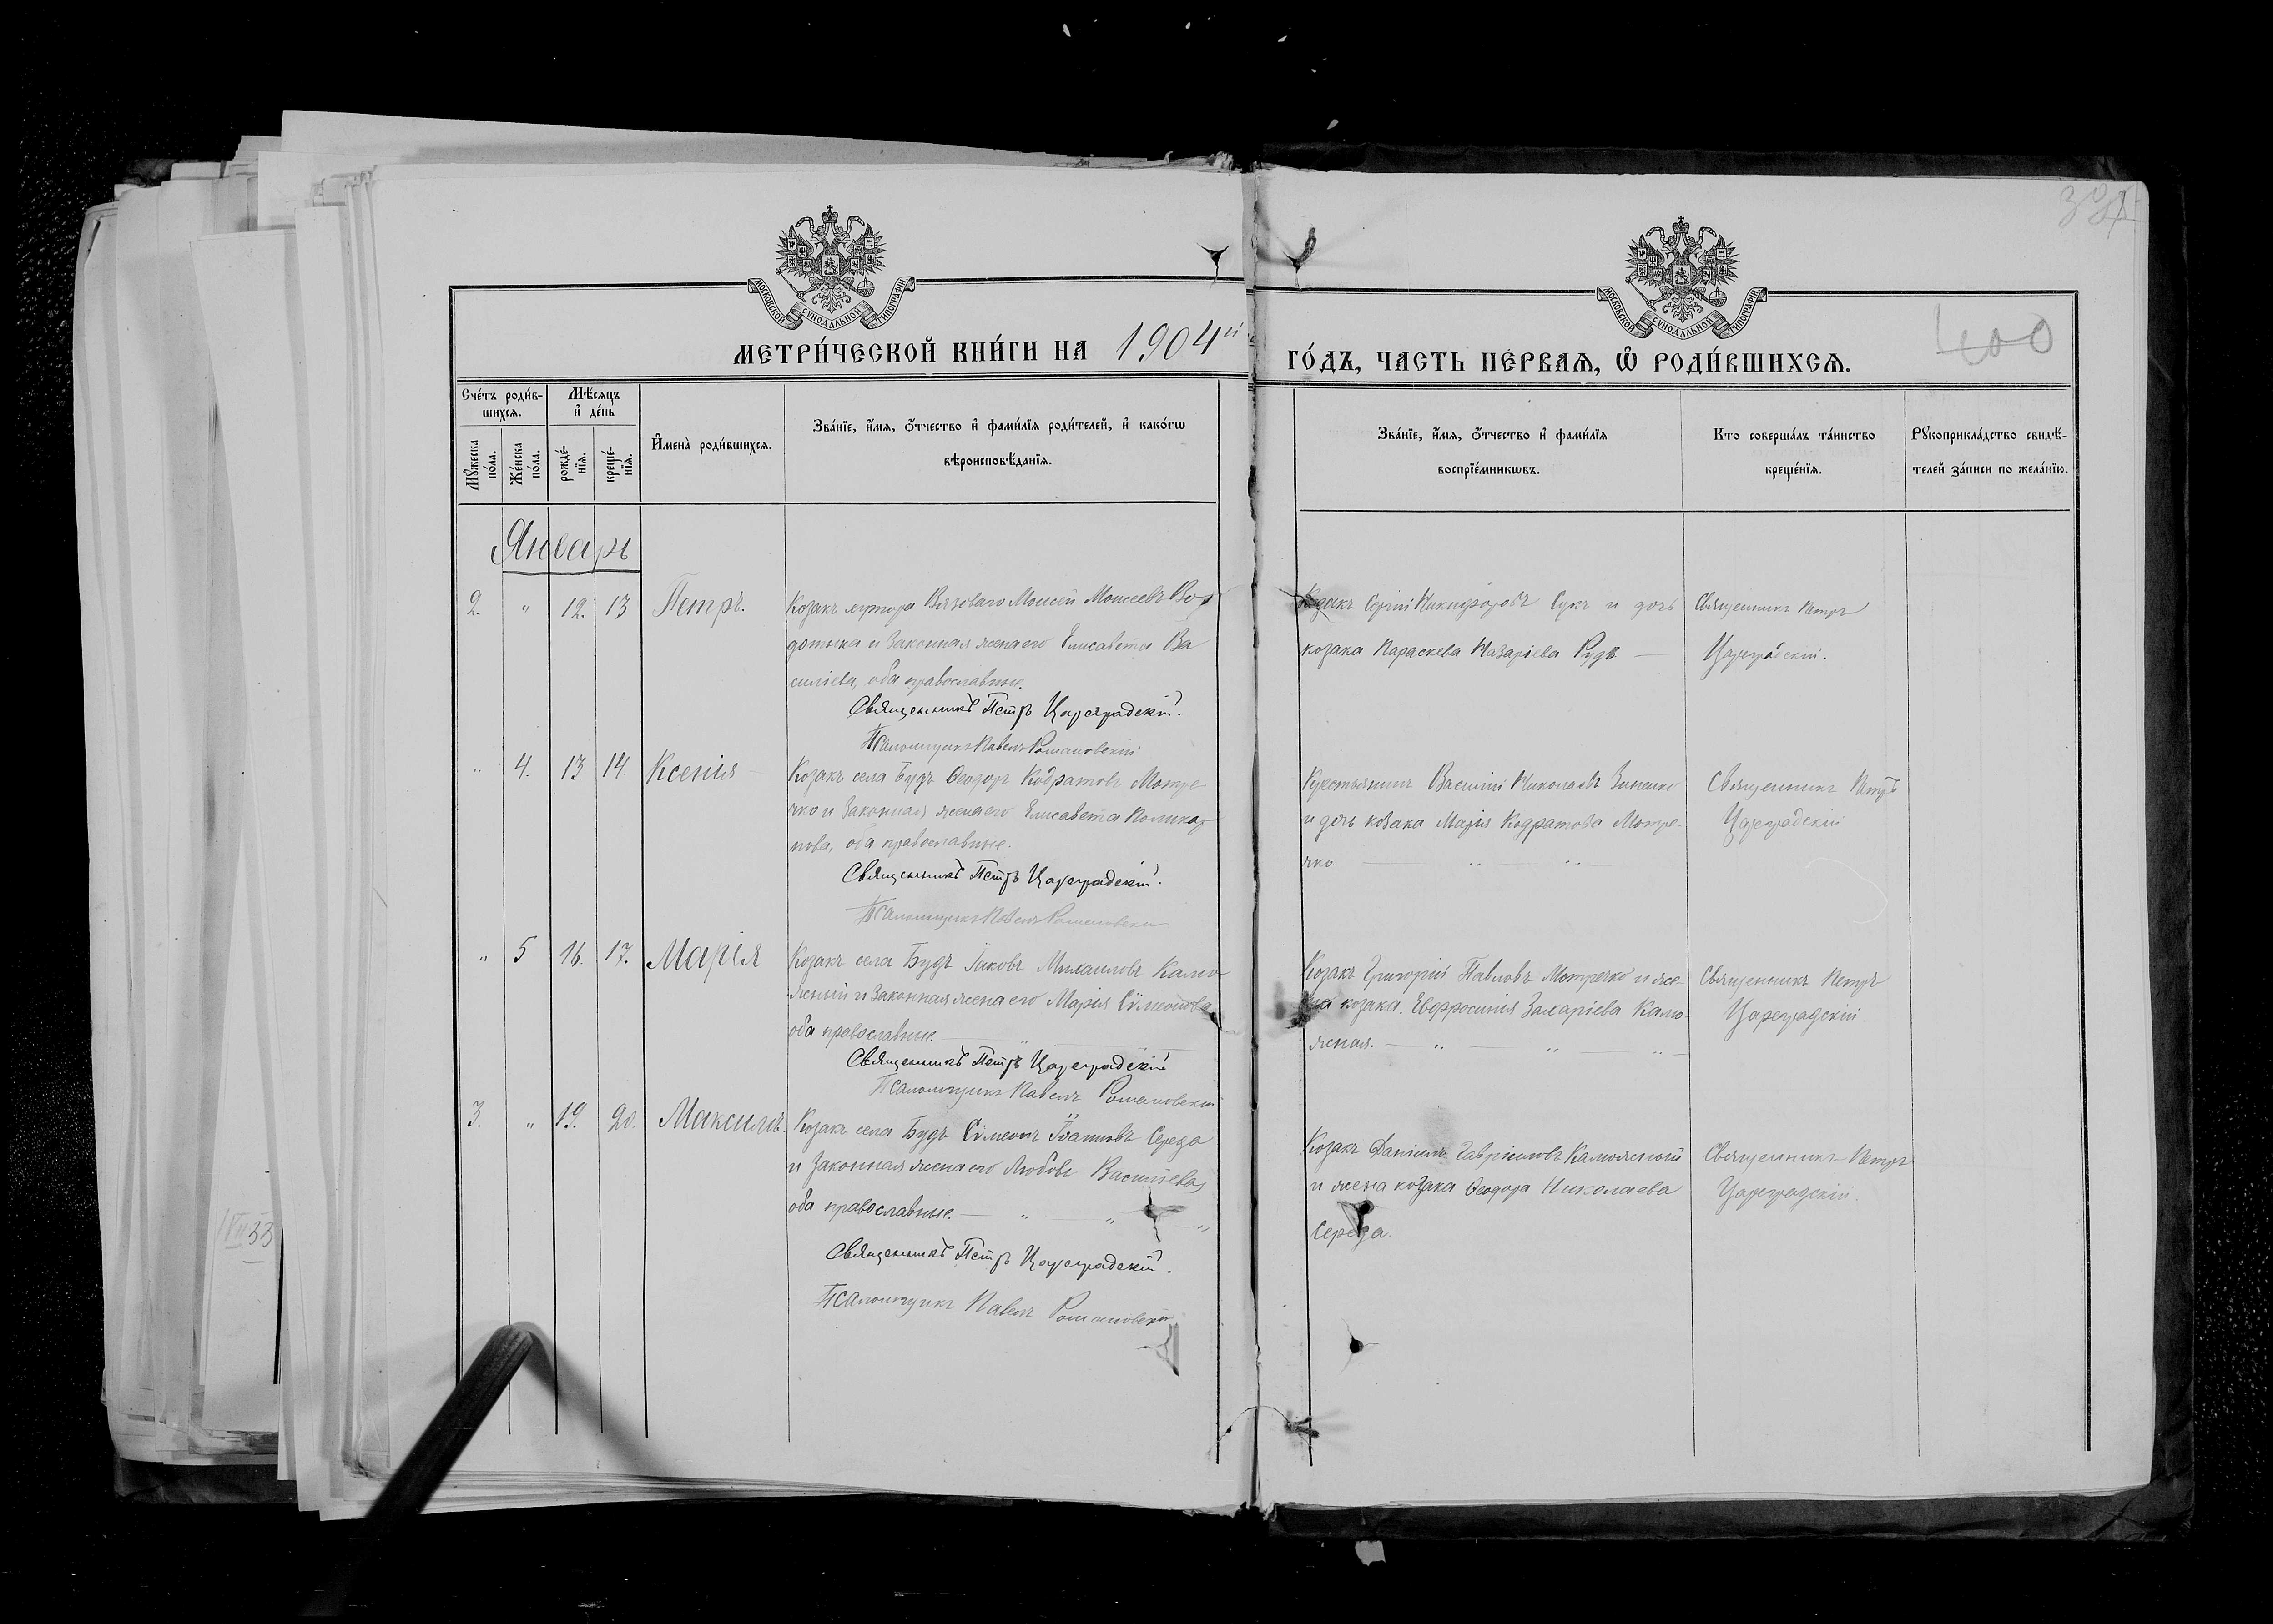 МОСКОВСКОЙ СУНОДАЛЬНОЙ ТИПОГРАФІИ
МОСКОВСКОЙ СУНОДАЛЬНОЙ ТИПОГРАФІИ
400
МЕТРИ́ЧЕСКОЙ КНИ́ГИ НА 1904й
ГО́ДЪ, ЧАСТЬ ПЕ́РВАѦ, Ѿ РОДИ́ВШИХСѦ.
Сче́тъ роди́в-
шихсѧ.
Мѣ́сѧцъ
и҆ де́нь
Мꙋ́жеска
по́ла.
Же́нска
по́ла.
рожде́-
нїѧ.
креще́-
нїѧ.
И҆мена̀ роди́вшихсѧ.
Зва́нїе, и҆́мѧ, о҆́тчество и҆ фами́лїѧ роди́телей, и҆ како́гѡ
вѣроисповѣ́данїѧ.
Зва́нїе, и҆́мѧ, о҆́тчество и҆ фами́лїѧ
воспрїе́мникѡвъ.
Кто соверша́лъ та́инство
креще́нїѧ.
Рꙋкоприкла́дство свидѣ́-
телей за́писи по жела́нїю.
Январь
2. " 12. 13 Петръ.
Козакъ хутора Вязоваго Моисей Моисеевъ
и законная жена его Елисавета Ва
силіева, оба православные.
Священникъ Петръ Цареградскій.
Псаломщикъ Павелъ Романовскій
Козакъ Сергій Никифоровъ Сукъ и дочь
козака Параскева Назаріева Рудь —
Священникъ Петръ
Цареградскій.
" 4. 13. 14. Ксенія —
Козакъ села Будъ Ѳеодоръ Кодратовъ Мотре
чко и законная жена его Елисавета Поликар
пова, оба православные.
Священникъ Петръ Цареградскій.
Псаломщикъ Павелъ Романовскій
Крестьянинъ Василій Николаевъ Зиненко
и дочь козака Марія Кодратова Мотре-
чко. — " — " —
Священникъ Петръ
Цареградскій
" 5 16. 17. Марія
Козакъ села Будъ Іаковъ Михаиловъ Калю
жный и законная жена его Марія Сѵмеонова
оба православные. — " —
Священникъ Петръ Цареградскій
Псаломщикъ Павелъ Романовскій
Козакъ Григорій Павловъ Мотречко и же-
на козака Евфросинія Захаріева Калю-
жная. — " — " — " —
Священникъ Петръ
Цареградскій.
3. " 19. 20. Максимъ.
Козакъ села Будъ Сѵмеонъ Іоанновъ Середа
и законная жена его Любовь Василіева,
оба православные. — " — " — "
Священникъ Петръ Цареградскій.
Псаломщикъ Павелъ Романовскій
Козакъ Даніилъ Гавріиловъ Калюжный
и жена козака Ѳеодора Николаева
Середа.
Священникъ Петръ
Цареградскій.